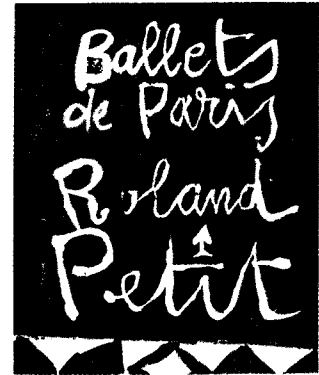 Ballets
de Paris
Roland
Petit